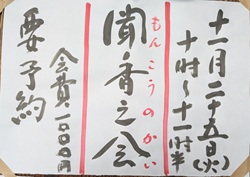 十一月二十五日(火)
十時〜十一時半
もんこうのかい
聞香之会
会費一〇〇〇円
要予約